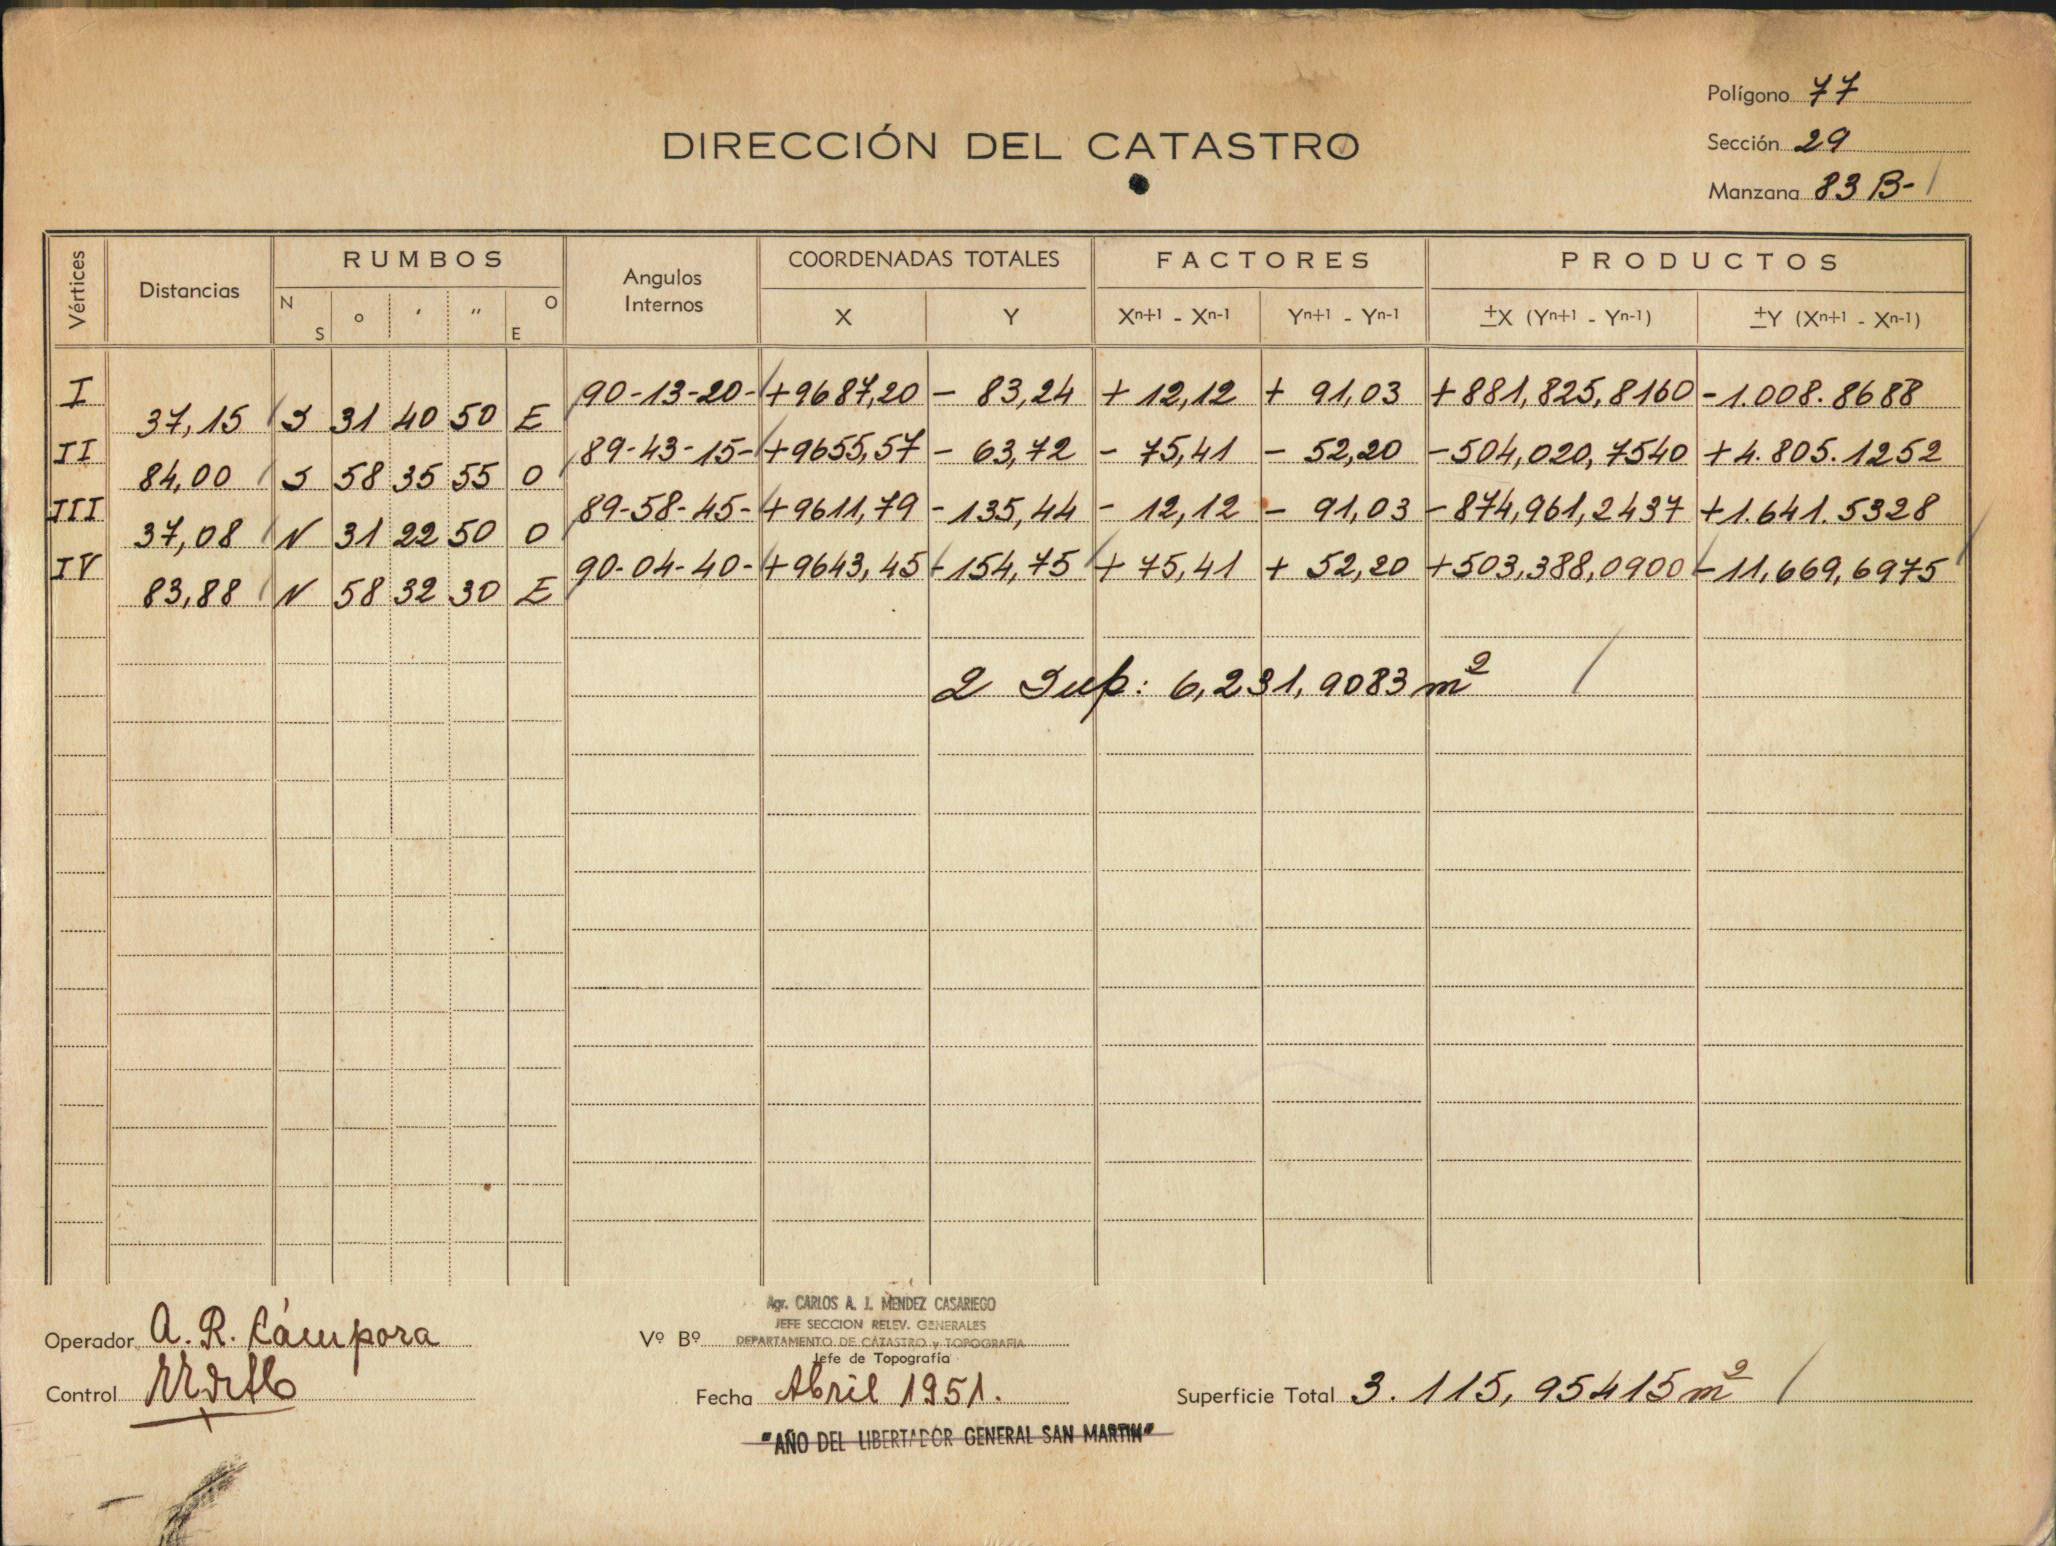 Polígono 77
DIRECCIÓN DEL CATASTRO
Sección 29
Manzana 83 B-
Vértices Distancias RUMBOS Angulos Internos COORDENADAS TOTALES FACTORES PRODUCTOS
N S o ' " O E X Y Xn+1 - Xn-1 Yn+1 - Yn-1 ±X (Yn+1 - Yn-1) ±Y (Xn+1 - Xn-1)
I 90-13-20- +9687,20 - 83,24 + 12,12 + 91,03 +881,825,8160 -1.008.8688
37,15 S 31 40 50 E
II 89-43-15- +9655,57 - 63,72 - 75,41 - 52,20 -504,020,7540 +4.805.1252
84,00 S 58 35 55 O
III 89-58-45- +9611,79 -135,44 - 12,12 - 91,03 -874,961,2437 +1.641.5328
37,08 N 31 22 50 O
IV 90-04-40- +9643,45 -154,75 + 75,41 + 52,20 +503,388,0900 -11,669,6975
83,88 N 58 32 30 E
2 Sup: 6,231,9083 m2
Agr. CARLOS A. J. MENDEZ CASARIEGO
JEFE SECCION RELEV. GENERALES
Operador A. R. Cámpora Vº Bº DEPARTAMENTO DE CATASTRO y TOPOGRAFIA
Jefe de Topografía
Control
Fecha Abril 1951. Superficie Total 3.115,95415 m2
"AÑO DEL LIBERTADOR GENERAL SAN MARTIN"